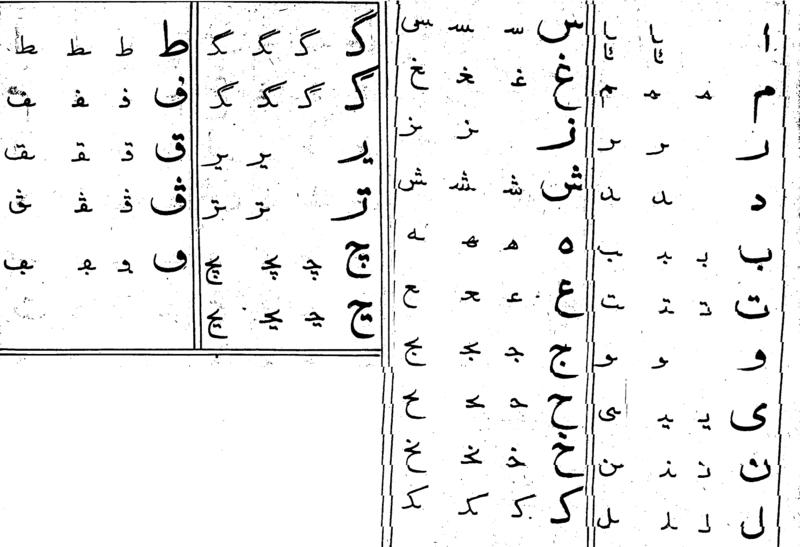 ا
م مـ ـمـ ـم
ر ـر ـر
د ـد ـد
ب بـ ـبـ ـب
ت تـ ـتـ ـت
و ـو ـو
ی یـ ـیـ ـی
ن نـ ـنـ ـن
ل لـ ـلـ ـل
س سـ ـسـ ـس
غ غـ ـغـ ـغ
ز ـز ـز
ش شـ ـشـ ـش
ه هـ ـهـ ـه
ع عـ ـعـ ـع
ج جـ ـجـ ـج
ح حـ ـحـ ـح
خ خـ ـخـ ـخ
ک کـ ـکـ ـک
گ گـ ـگـ ـگ
گ گـ ـگـ ـگ
ڗ ـڗ ـڗ
چ چـ ـچـ ـچ
ط طـ ـطـ ـط
ف فـ ـفـ ـف
ق قـ ـقـ ـق
ڨ ڨـ ـڨـ ـڨ